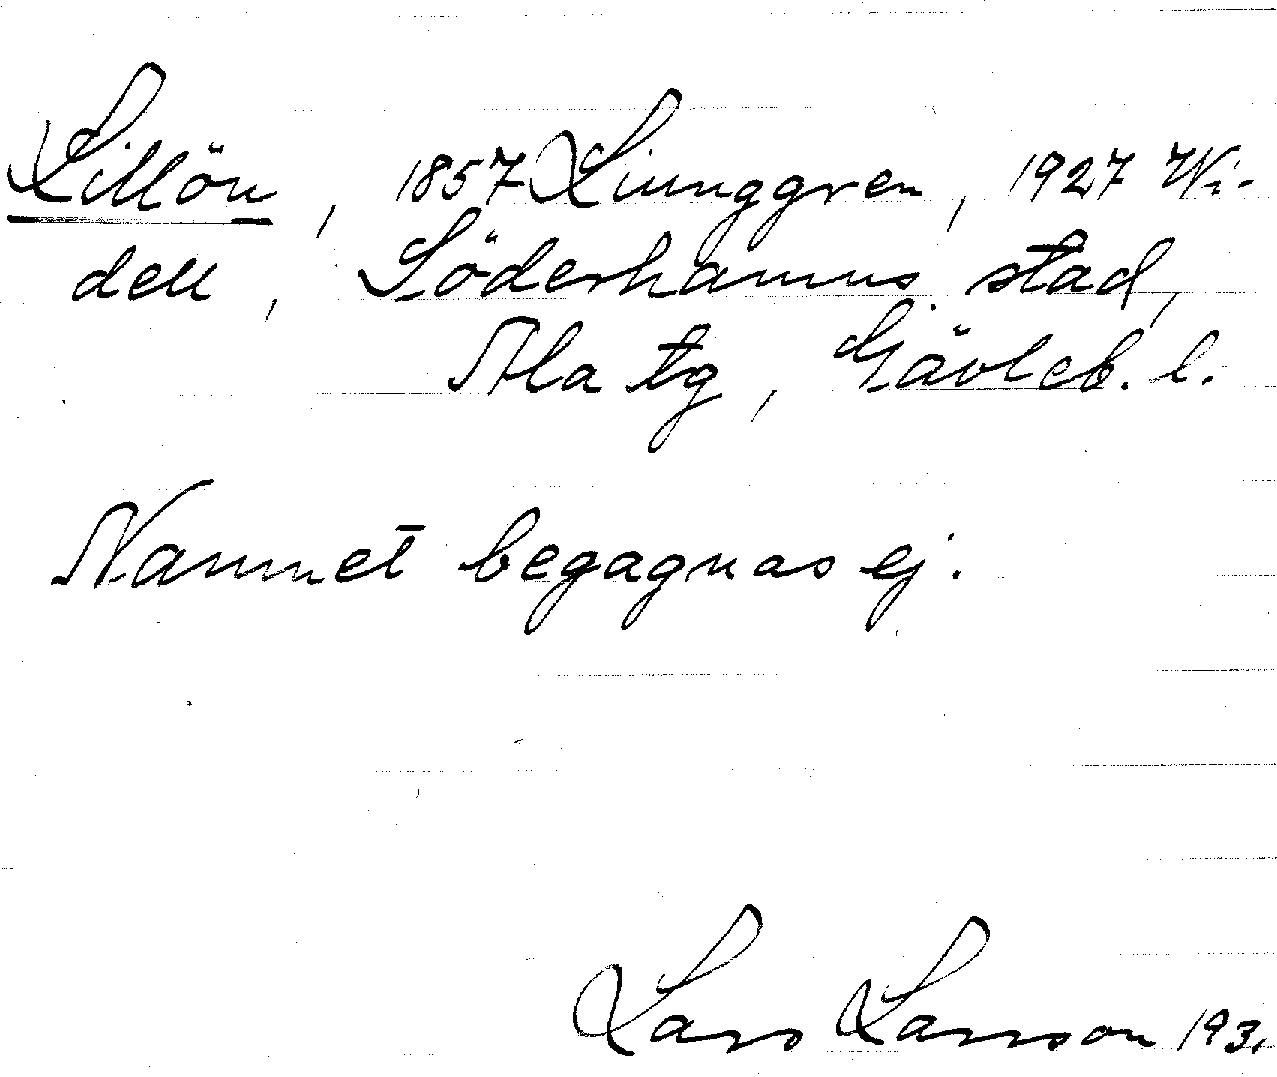 Lillön, 1857 Liunggren, 1927 Wi-
dell, Söderhamns stad,
Ala tg, Gävleb. l.
Namnet begagnas ej.
Lars Larsson 193